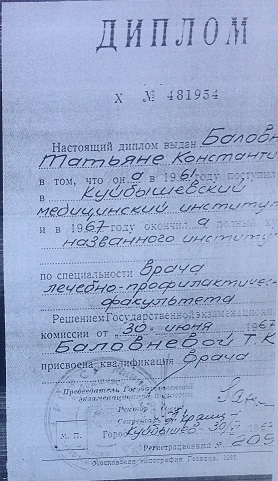 ДИПЛОМ
Х № 481954
Настоящий диплом выдан Баловн
Татьяне Константи
в том, что он а в 1961 году поступил
в Куйбышевский
медицинский институт
и в 1967 году окончил а полный
названного институ
по специальности врача
лечебно-профилактичес
факультета
Решением Государственной экзаменацион
комиссии от 30 июня 1967
Баловневой Т. К
присвоена квалификация врача
Председатель Государственной
экзаменационной комиссии
Ректор
Секретарь
М. П. Город Куйбышев 30/VI 1967
Регистрационный № 209
Московская типография Гознака, 1965.